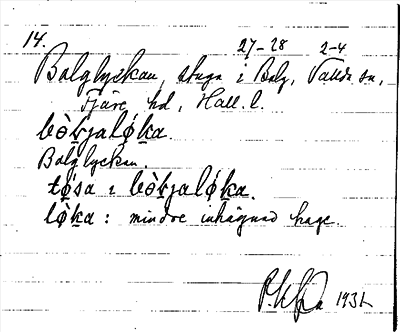 14.
27-28 2-4
Balglyckan, stuga i Balg, Valda sn,
Fjäre hd, Hall. l.
bò̱kjalǿka.
Balglyckan.
tǿsa i bò̱kjalǿka.
lǿka: mindre inhägnad hage.
1931